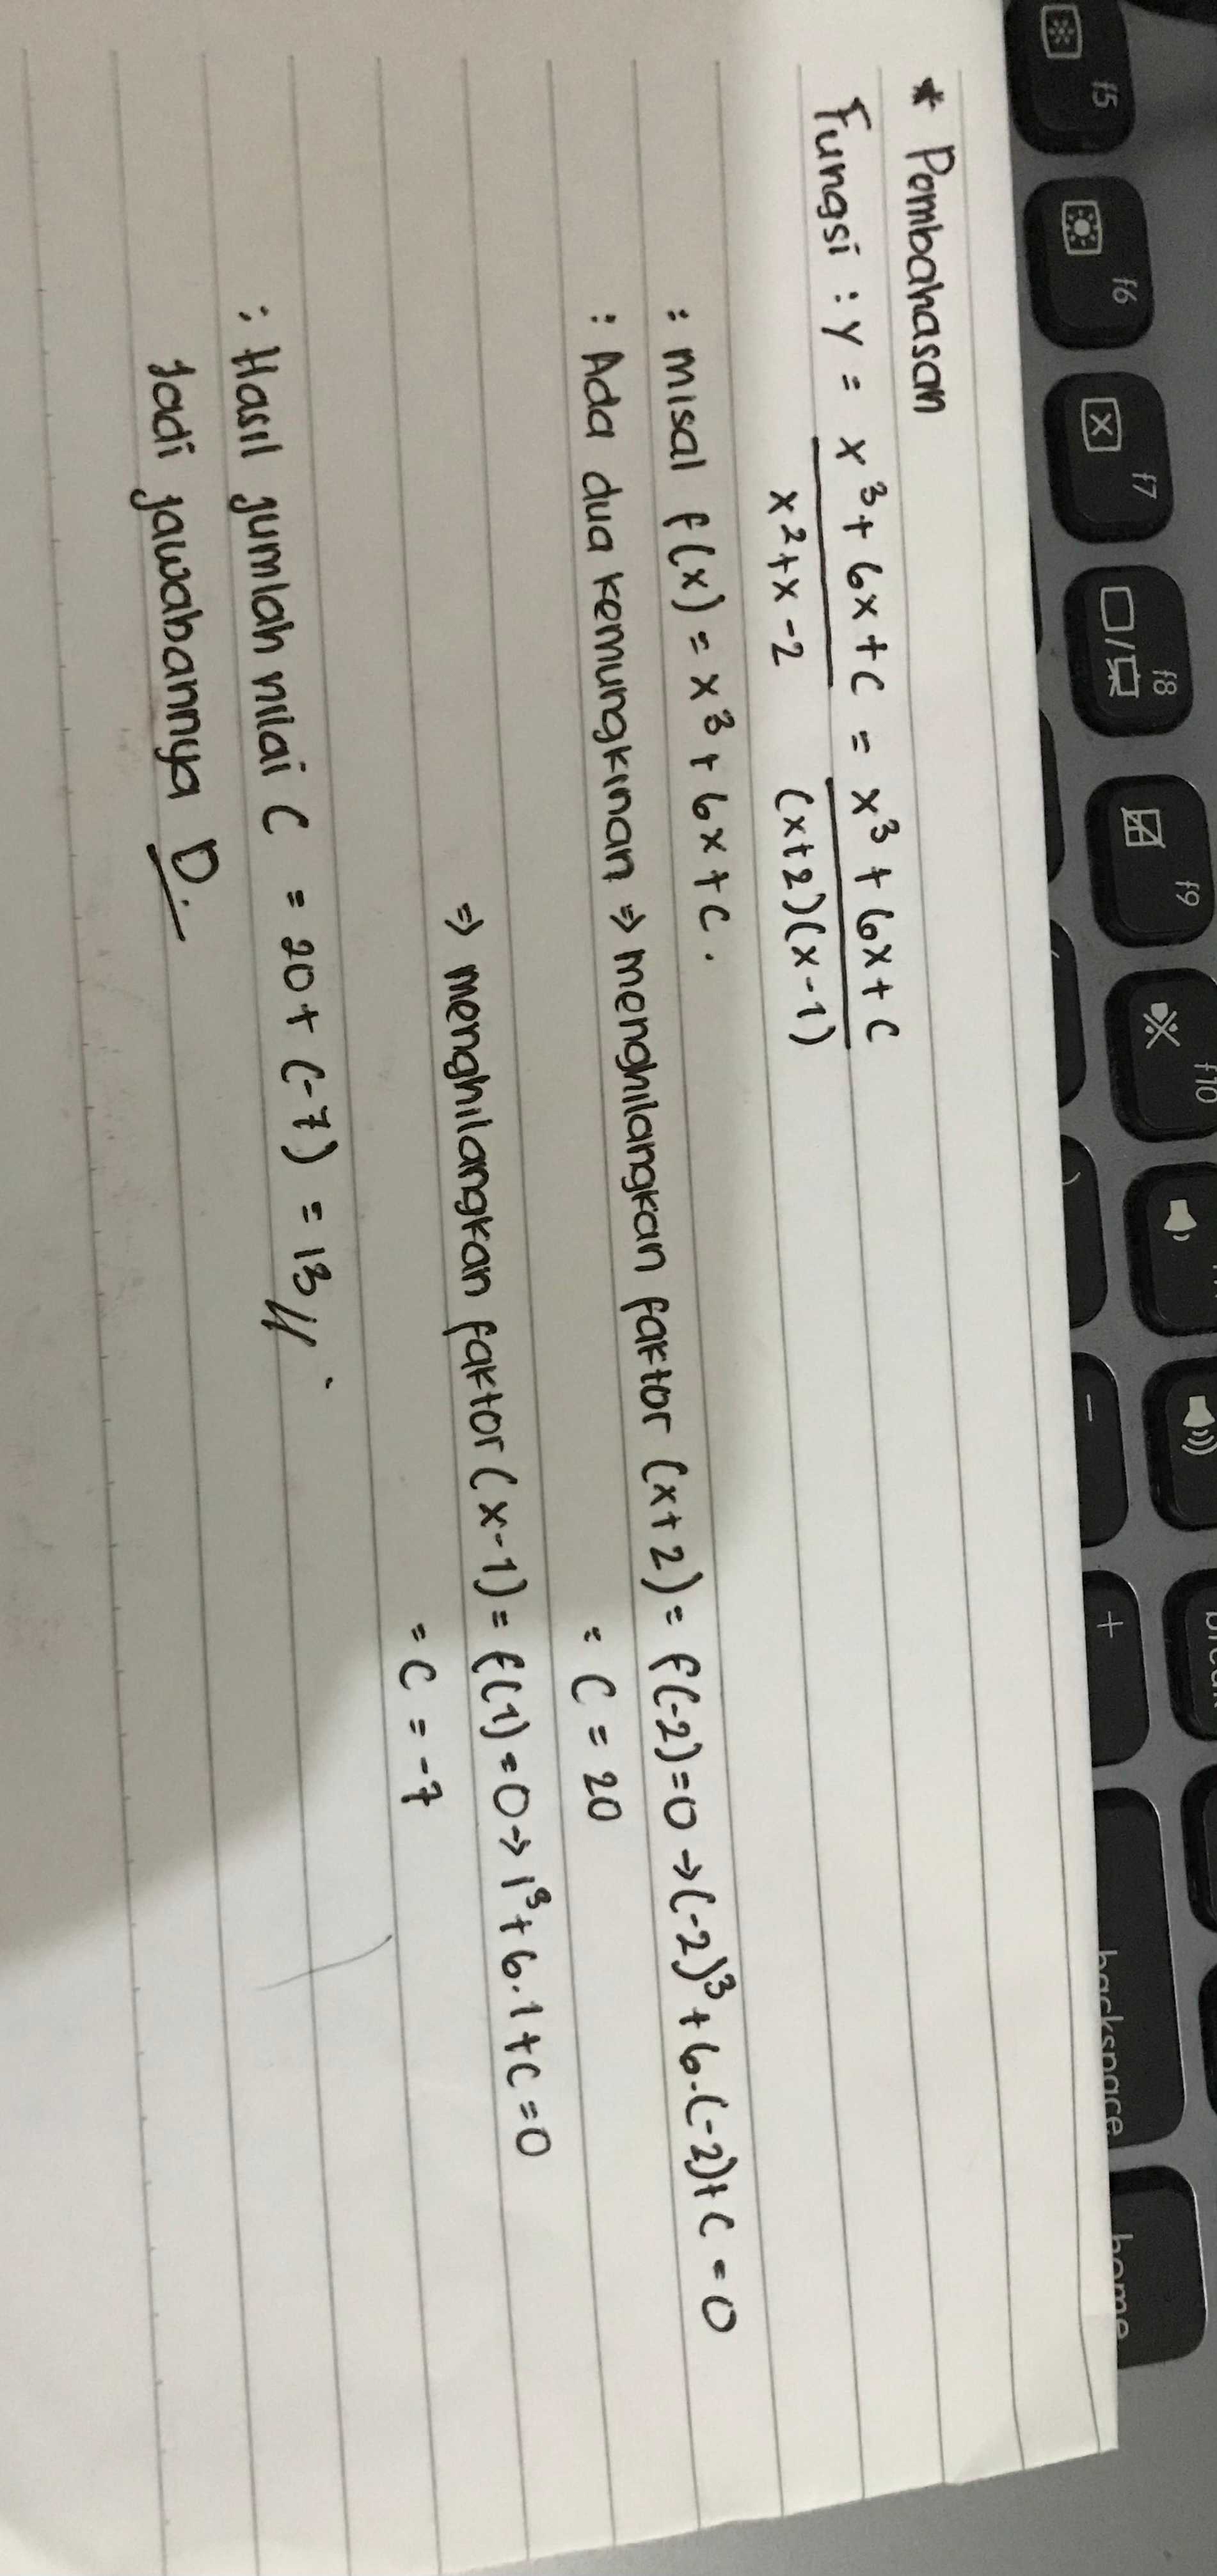 * Pembahasan
Fungsi : y = x³ + 6x + c = x³ + 6x + c
x² + x - 2 (x+2)(x-1)
: misal f(x) = x³ + 6x + c .
: Ada dua kemungkinan ⇒ menghilangkan faktor (x+2) = f(-2)=0 → (-2)³ + 6.(-2)+c = 0
= C = 20
⇒ menghilangkan faktor (x-1) = f(1) = 0 → 1³ + 6.1 + c = 0
= C = -7
: Hasil jumlah nilai C = 20 + (-7) = 13 //.
Jadi jawabannya D.
f5
f6
f7
f8
f9
f10
-
+
backspace
home